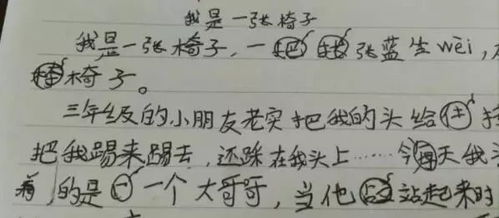 我是一张椅子
我是一张椅子，一张蓝生wèi，
椅子。
三年级的小朋友老实把我的头给
把我踢来踢去，还踩在我头上……今天我
的是一个大哥哥，当他站起来时